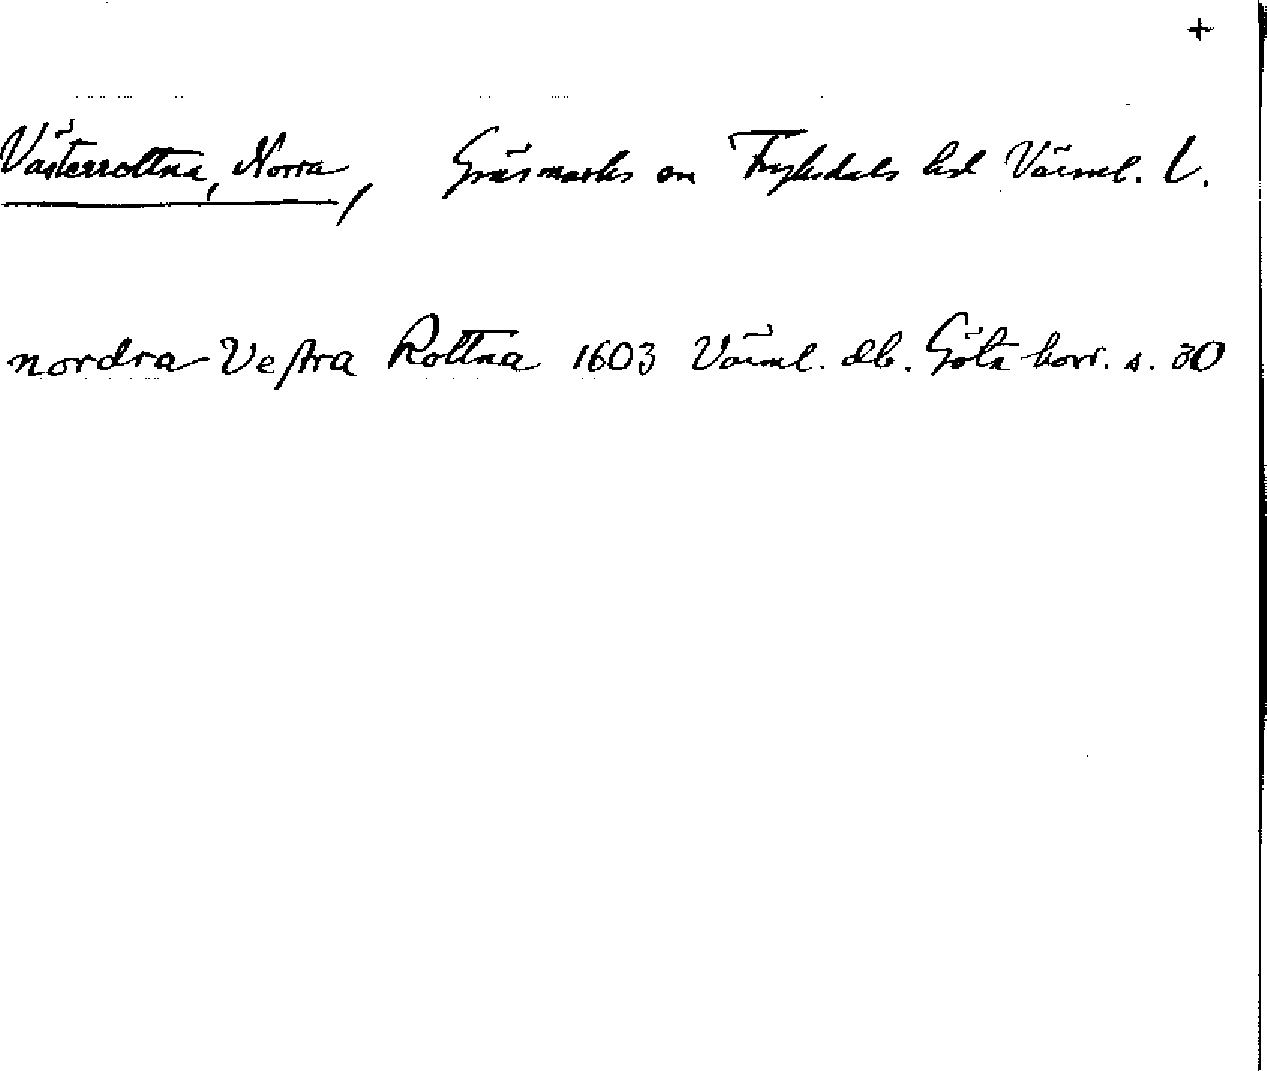 +
Västerrottna, Norra, Gräsmarks sn Fryksdals hd Värml. l.
nordra Vestra Rottna 1603 Värml. db. Göta hovr. s. 30